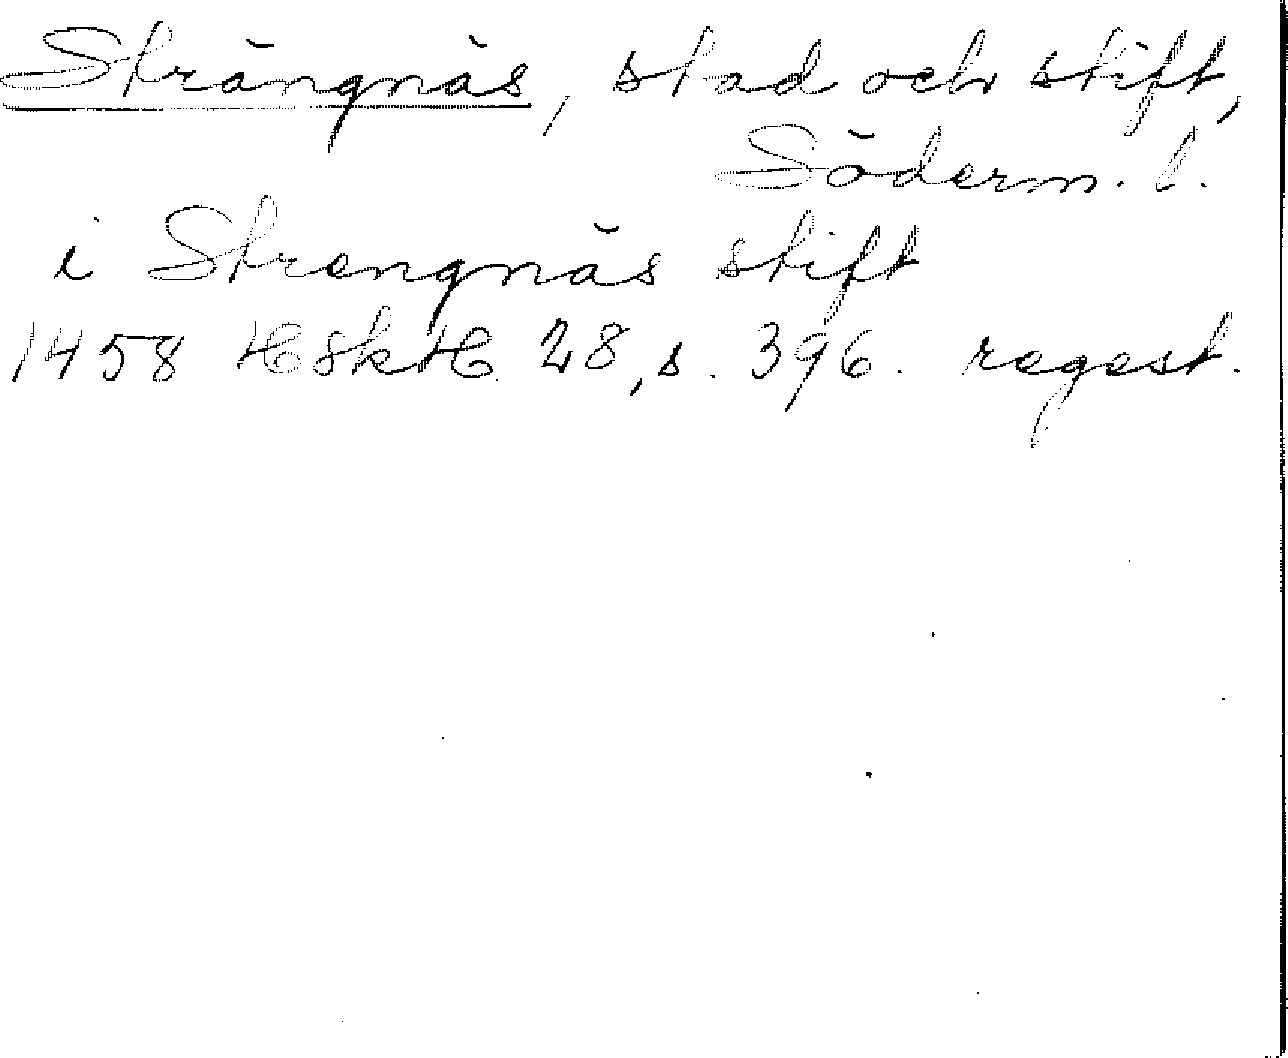 Strängnäs, stad och stift,
Söderm. l.
i Strengnäs stift
1458 HSkH 28, s. 396. regest.